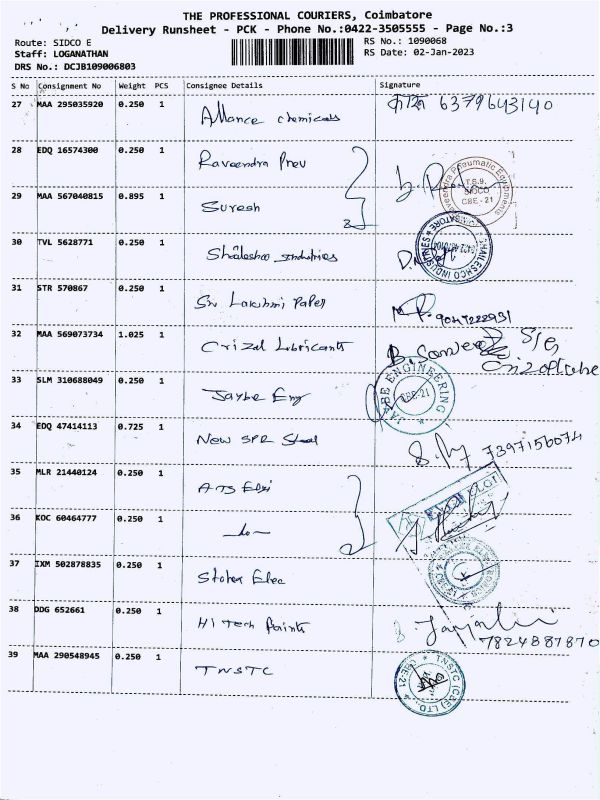 THE PROFESSIONAL COURIERS, Coimbatore
Delivery Runsheet - PCK - Phone No.:0422-3505555 - Page No.:3
Route: SIDCO E
RS No.: 1090068
Staff: LOGANATHAN
RS Date: 02-Jan-2023
DRS No.: DCJB109006803
S No Consignment No Weight PCS Consignee Details Signature
27 MAA 295035920 0.250 1 Allance chemicals 6379643140
28 EDQ 16574300 0.250 1 Raveendra Pneu
29 MAA 567040815 0.895 1 Suresh
T.S.9, SIDCO CBE - 21
30 TVL 5628771 0.250 1 Shaleshco Industries
SHAILESHCO INDUSTRIES
31 STR 570867 0.250 1 Sri Lakshmi Paper
32 MAA 569073734 1.025 1 Crizal Lubricants
33 SLM 310688049 0.250 1 Jaybe Eng
JAYBE ENGINEERING CBE-21
34 EDQ 47414113 0.725 1 New SPR Steel 7397156074
35 MLR 21440124 0.250 1
36 KOC 60464777 0.250 1 -do-
37 IXM 502878835 0.250 1
38 DDG 652661 0.250 1 Hi Tech Paints 7824887870
39 MAA 290548945 0.250 1 TNSTC
TNSTC (CBE) LTD., CBE-21